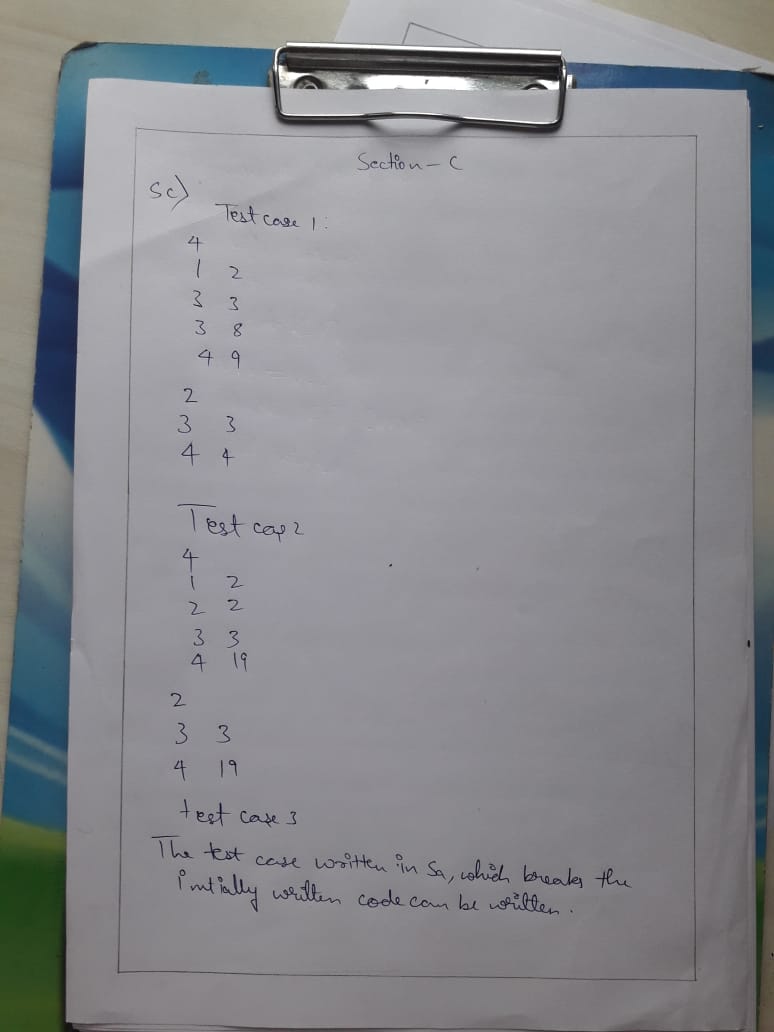 Section - C
5c)
Test case 1:
4
1 2
3 3
3 8
4 9
2
3 3
4 4
Test case 2
4
1 2
2 2
3 3
4 19
2
3 3
4 19
test case 3
The test case written in 5a, which breaks the
initially written code can be written.